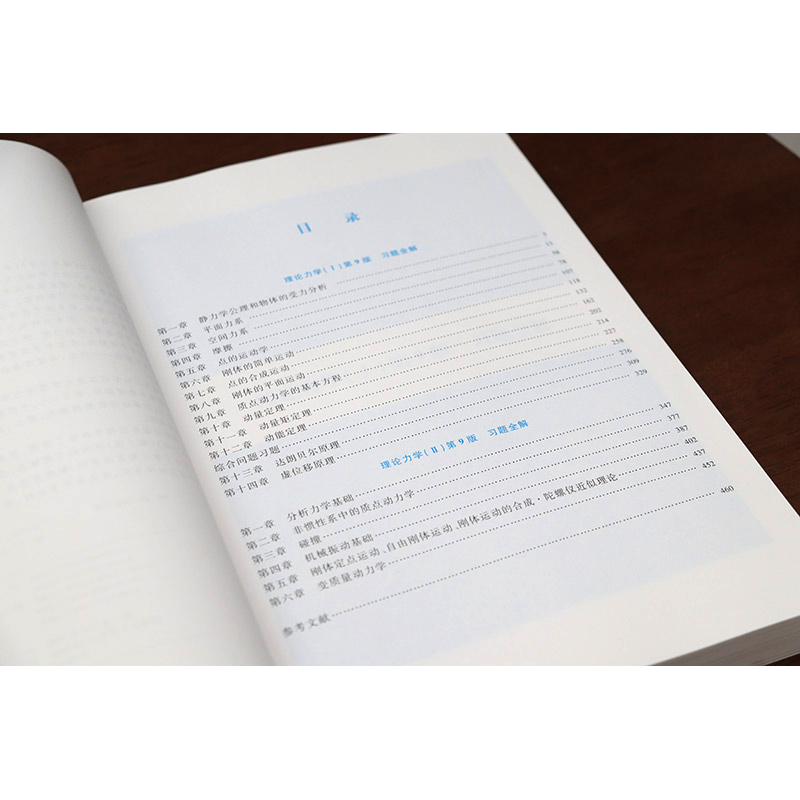 目 录
理论力学(Ⅰ)第9版 习题全解
第一章 静力学公理和物体的受力分析
第二章 平面力系
第三章 空间力系
第四章 摩擦
第五章 点的运动学 107
第六章 刚体的简单运动 118
第七章 点的合成运动 132
第八章 刚体的平面运动 162
第九章 质点动力学的基本方程 202
第十章 动量定理 214
第十一章 动量矩定理 227
第十二章 动能定理 258
综合问题习题 276
第十三章 达朗贝尔原理 309
第十四章 虚位移原理 329
理论力学(Ⅱ)第9版 习题全解
第一章 分析力学基础 347
第二章 非惯性系中的质点动力学 377
第三章 碰撞 387
第四章 机械振动基础 402
第五章 刚体定点运动、自由刚体运动、刚体运动的合成·陀螺仪近似理论 437
第六章 变质量动力学 452
参考文献 460